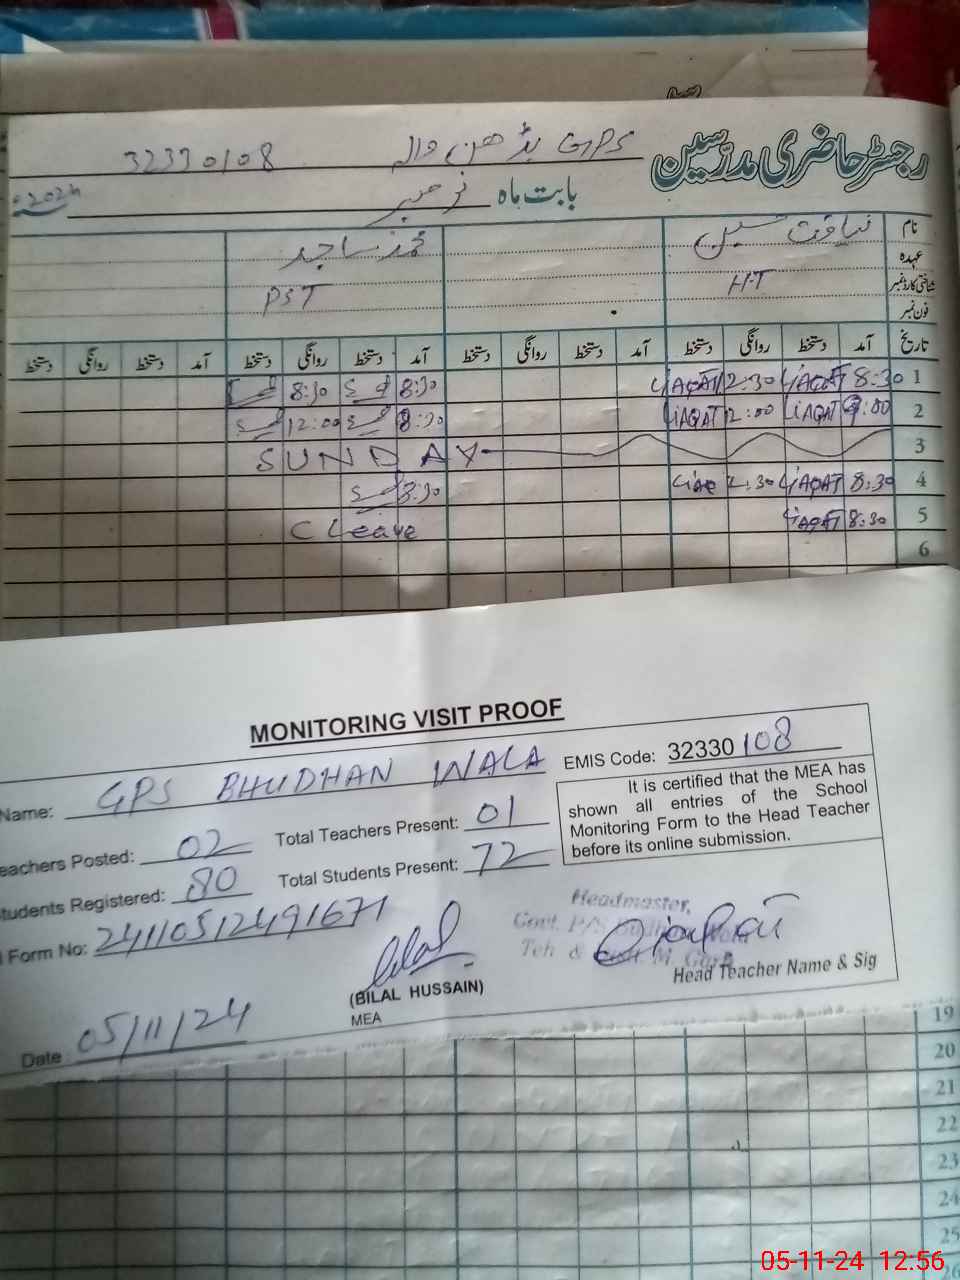 رجسٹر حاضری مدرسین GPS بڈھن والہ 32330108
بابت ماہ نومبر 2024ء
نام لیاقت حسین محمد ساجد
عہدہ
شناختی کارڈ نمبر H.T PST
فون نمبر
تاریخ آمد دستخط روانگی دستخط آمد دستخط روانگی دستخط آمد دستخط روانگی دستخط آمد دستخط روانگی دستخط
1 8:30 LiAQAT 12:30 LiAQAT 8:30 8:30
2 8:00 LiAQAT 12:00 LiAQAT 8:30 12:00
3 SUNDAY
4 8:30 LiAQAT 2.30 Liaq 8:30
5 8:30 LiAQAT C Leave
6
MONITORING VISIT PROOF
Name: GPS BHUDHAN WALA EMIS Code: 32330108
It is certified that the MEA has
shown all entries of the School
Monitoring Form to the Head Teacher
before its online submission.
eachers Posted: 02 Total Teachers Present: 01
tudents Registered: 80 Total Students Present: 72
l Form No: 24110512491671
Headmaster,
Govt. P/S Budhan Wala
Teh & Distt. M. Garh
(BILAL HUSSAIN)
MEA
Head Teacher Name & Sig
Date 05/11/24
19
20
21
22
23
24
25
26
05-11-24 12:56